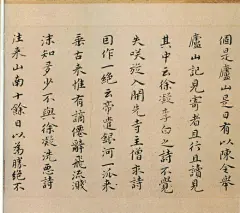 個是廬山是日有以陳令舉
廬山記見寄者且行且讀見
其中云徐凝李白之詩不覺
失咲旋入開先寺主僧求詩
因作一絕云帝遣銀河一派
垂古来惟有謫僊辭飛流濺
沫知多少不與徐凝洗惡詩
往来山南十餘日以為勝絕不